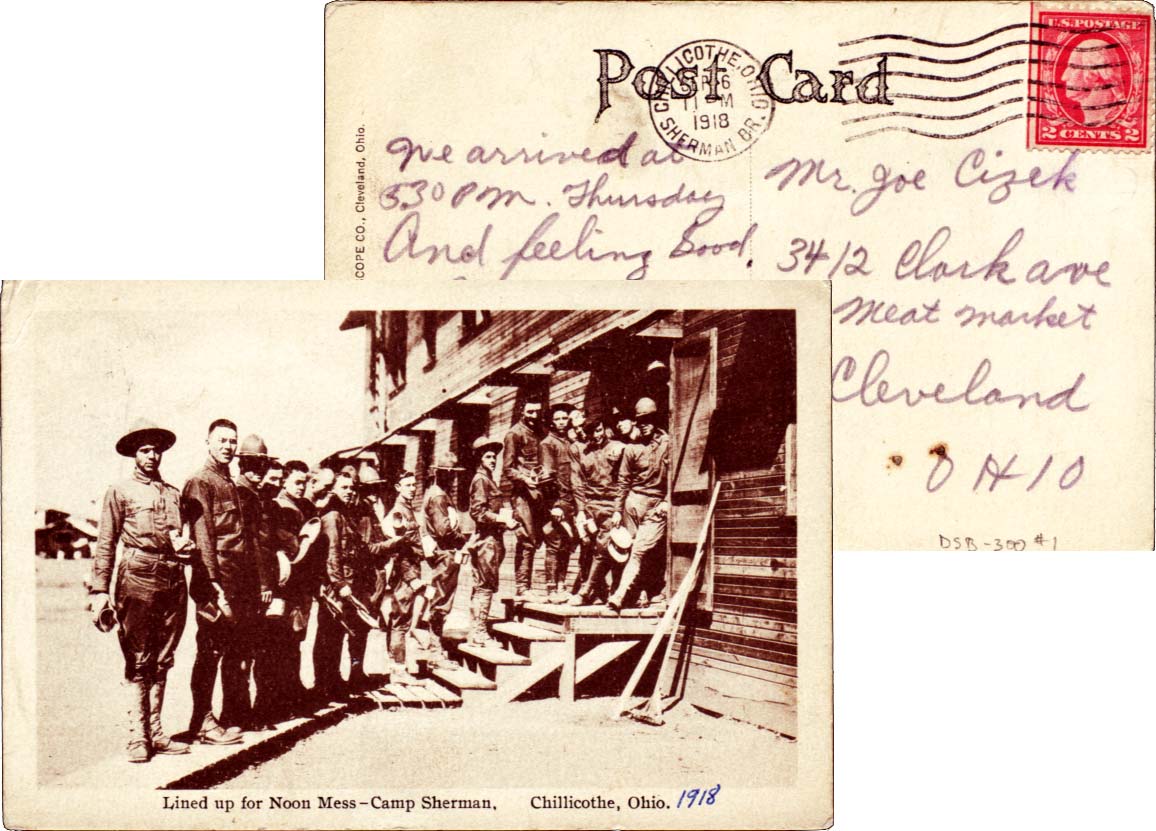 Post Card
CHILLICOTHE, OHIO
11 PM
1918
SHERMAN BR.
U.S. POSTAGE
2 CENTS 2
COPE CO., Cleveland, Ohio.
We arrived at
530 P.M. Thursday
And feeling Good.
Mr. Joe Cizek
3412 Clark ave
Meat market
Cleveland
OHIO
DSB-300 #1
Lined up for Noon Mess-Camp Sherman, Chillicothe, Ohio. 1918